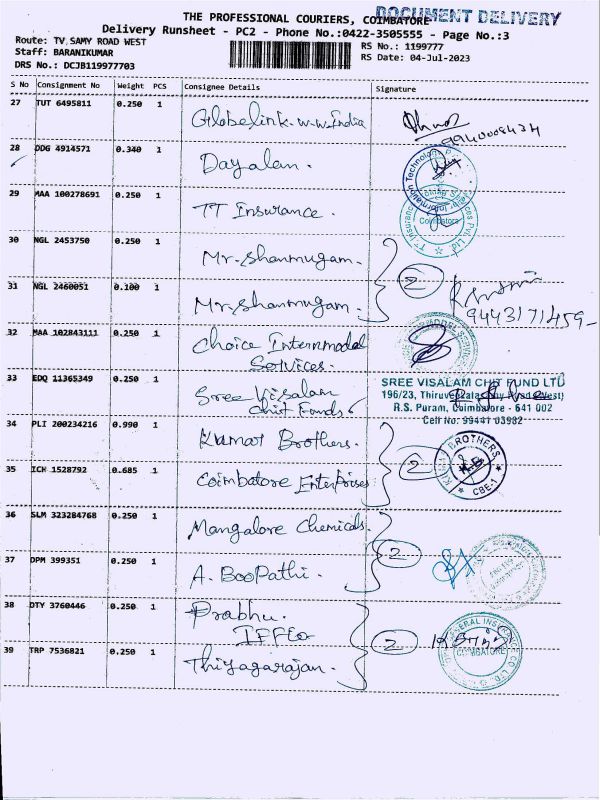 DOCUMENT DELIVERY
THE PROFESSIONAL COURIERS, COIMBATORE
Delivery Runsheet - PC2 - Phone No.:0422-3505555 - Page No.:3
Route: TV.SAMY ROAD WEST
Staff: BARANIKUMAR
DRS No.: DCJB119977703
RS No.: 1199777
RS Date: 04-Jul-2023
S No Consignment No Weight PCS Consignee Details Signature
27 TUT 6495811 0.250 1 Globelink. w.w. India
9940008434
28 DDG 4914571 0.340 1 Dayalan.
29 MAA 100278691 0.250 1 TT Insurance.
Coimbatore
30 NGL 2453750 0.250 1 Mr. Shanmugam.
2
31 NGL 2460051 0.100 1 Mr. Shanmugam.
9443171459
32 MAA 102843111 0.250 1 Choice Intermodal
Services.
33 EDQ 11365349 0.250 1 Sree Visalam
Chit Funds
SREE VISALAM CHIT FUND LTD
196/23, Thiruvenkatasamy Road (West)
R.S. Puram, Coimbatore - 641 002
Cell No: 99441 03982
34 PLI 200234216 0.990 1 Kumar Brothers.
2
BROTHERS
CBE-1
35 ICH 1528792 0.685 1 Coimbatore Enterprises
36 SLM 323284768 0.250 1 Mangalore Chemicals.
2
37 DPM 399351 0.250 1 A. Boopathi.
38 DTY 3760446 0.250 1 Prabhu.
IFFCo
2
COIMBATORE
39 TRP 7536821 0.250 1 Thiyagarajan.